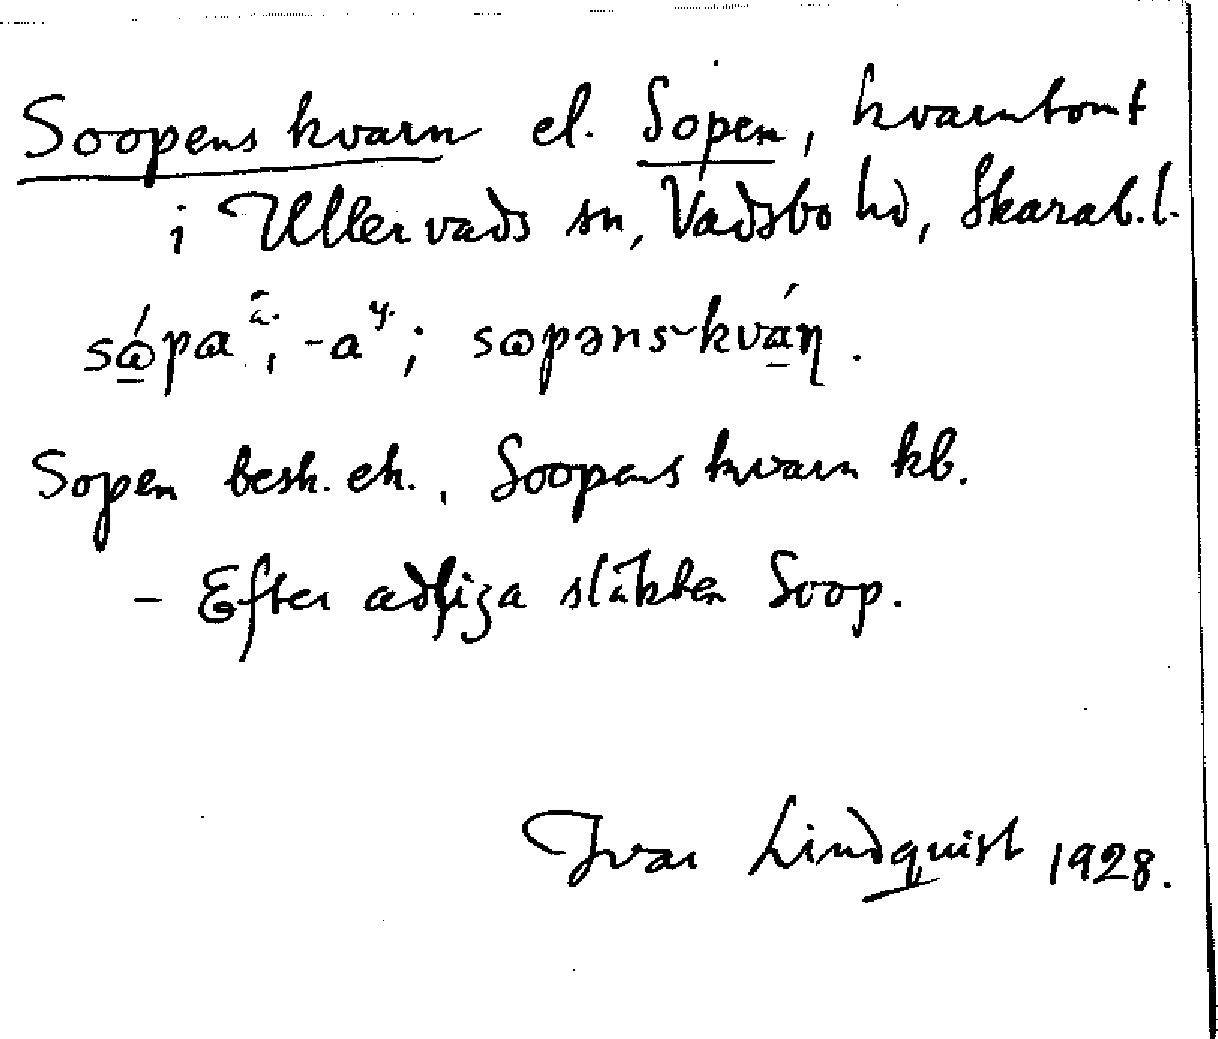 Soopens kvarn el. Sopen, kvarntomt
i Ullervads sn, Vadsbo hd, Skarab.l.
sώpα ä., -a y.; sωpəns-kváη.
Sopen besk. ek., Soopens kvarn kb.
- Efter adliga släkten Soop.
Ivar Lindquist 1928.